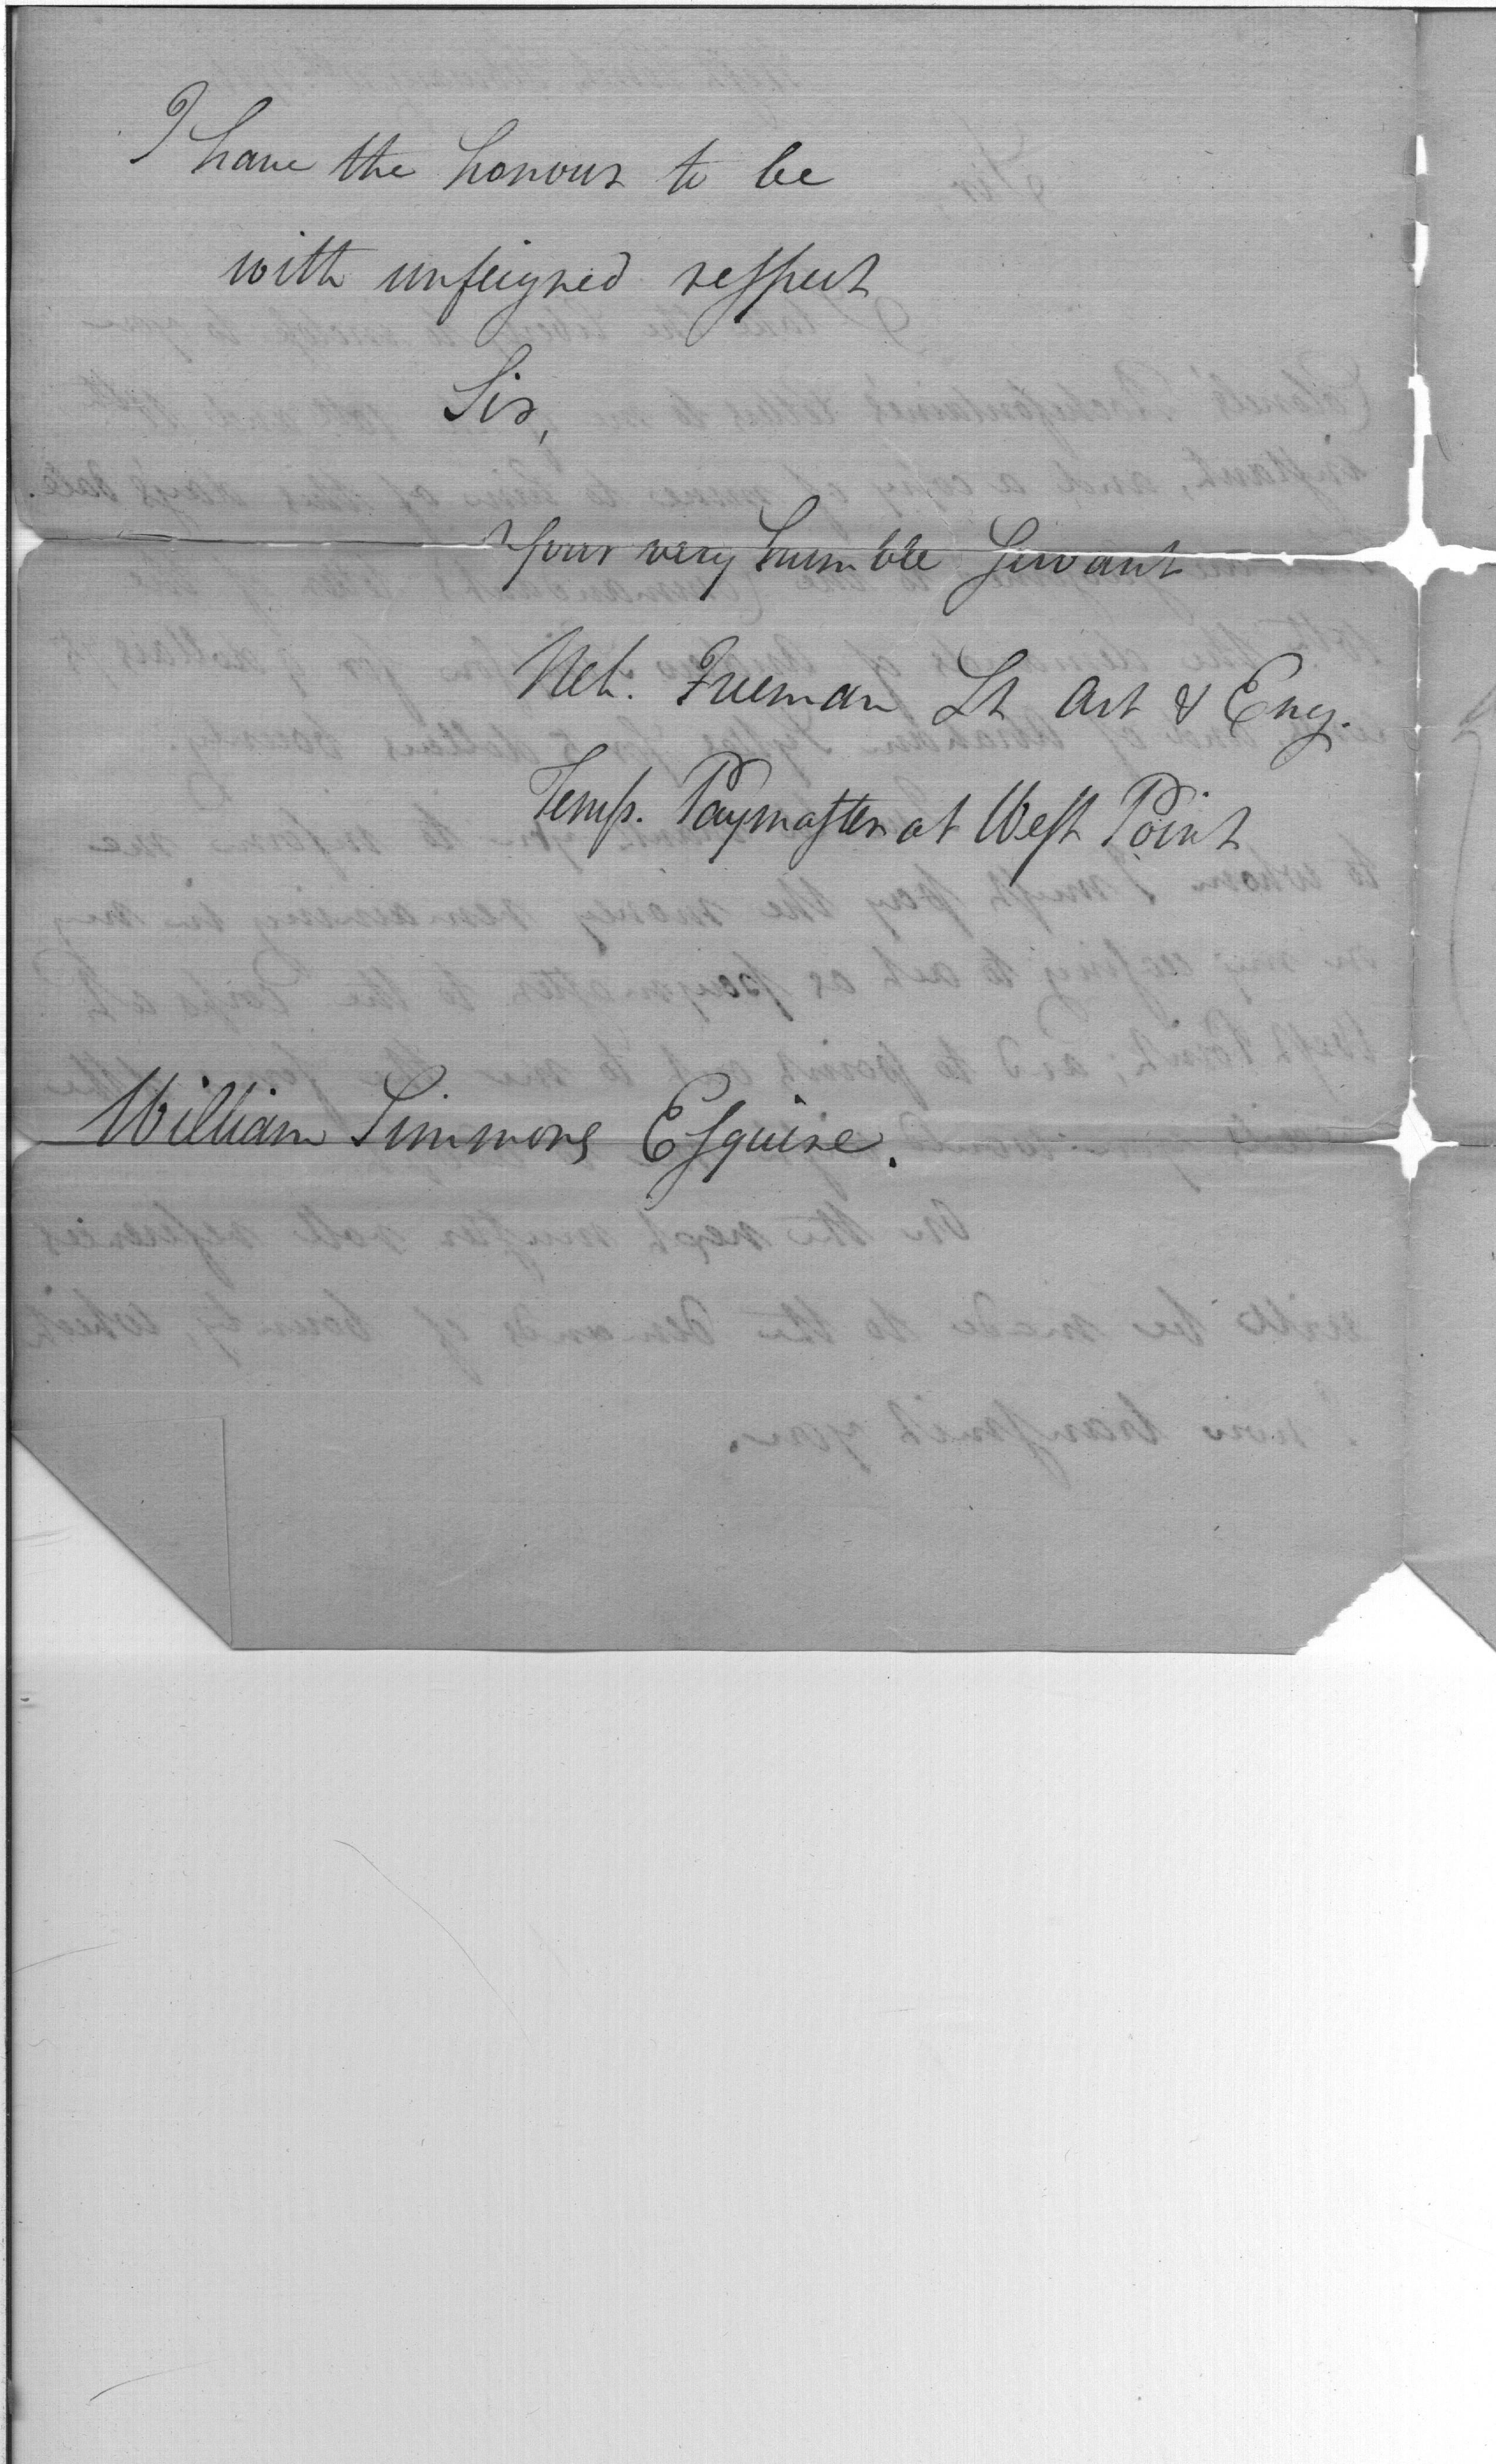 I have the honour to be
with unfeigned respect
Sir,
Your very humble Servant
Neh. Freeman Lt Art & Eng.
Temp. Paymaster at West Point
William Simmons Esquire.